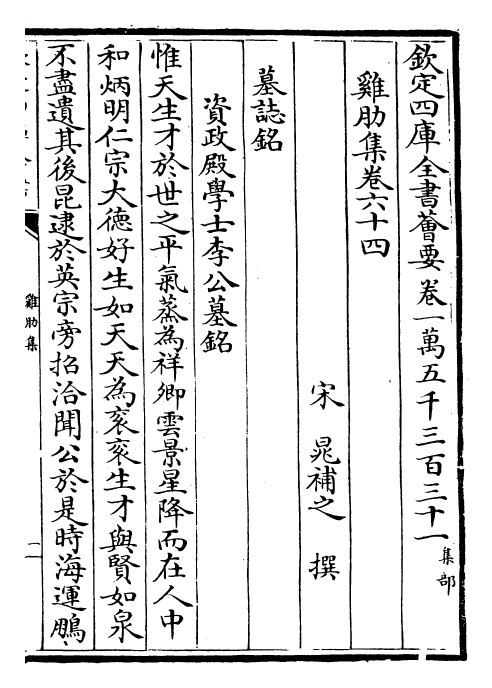 欽定四庫全書薈要卷一萬五千三百三十一集部
雞肋集卷六十四
宋 晁補之 撰
墓誌銘
資政殿學士李公墓銘
惟天生才於世之平氣蒸為祥卿雲景星降而在人中
和炳明仁宗大德好生如天天為袞袞生才與賢如泉
不盡遺其後昆逮於英宗旁招洽聞公於是時海運鵬
雞肋集
一